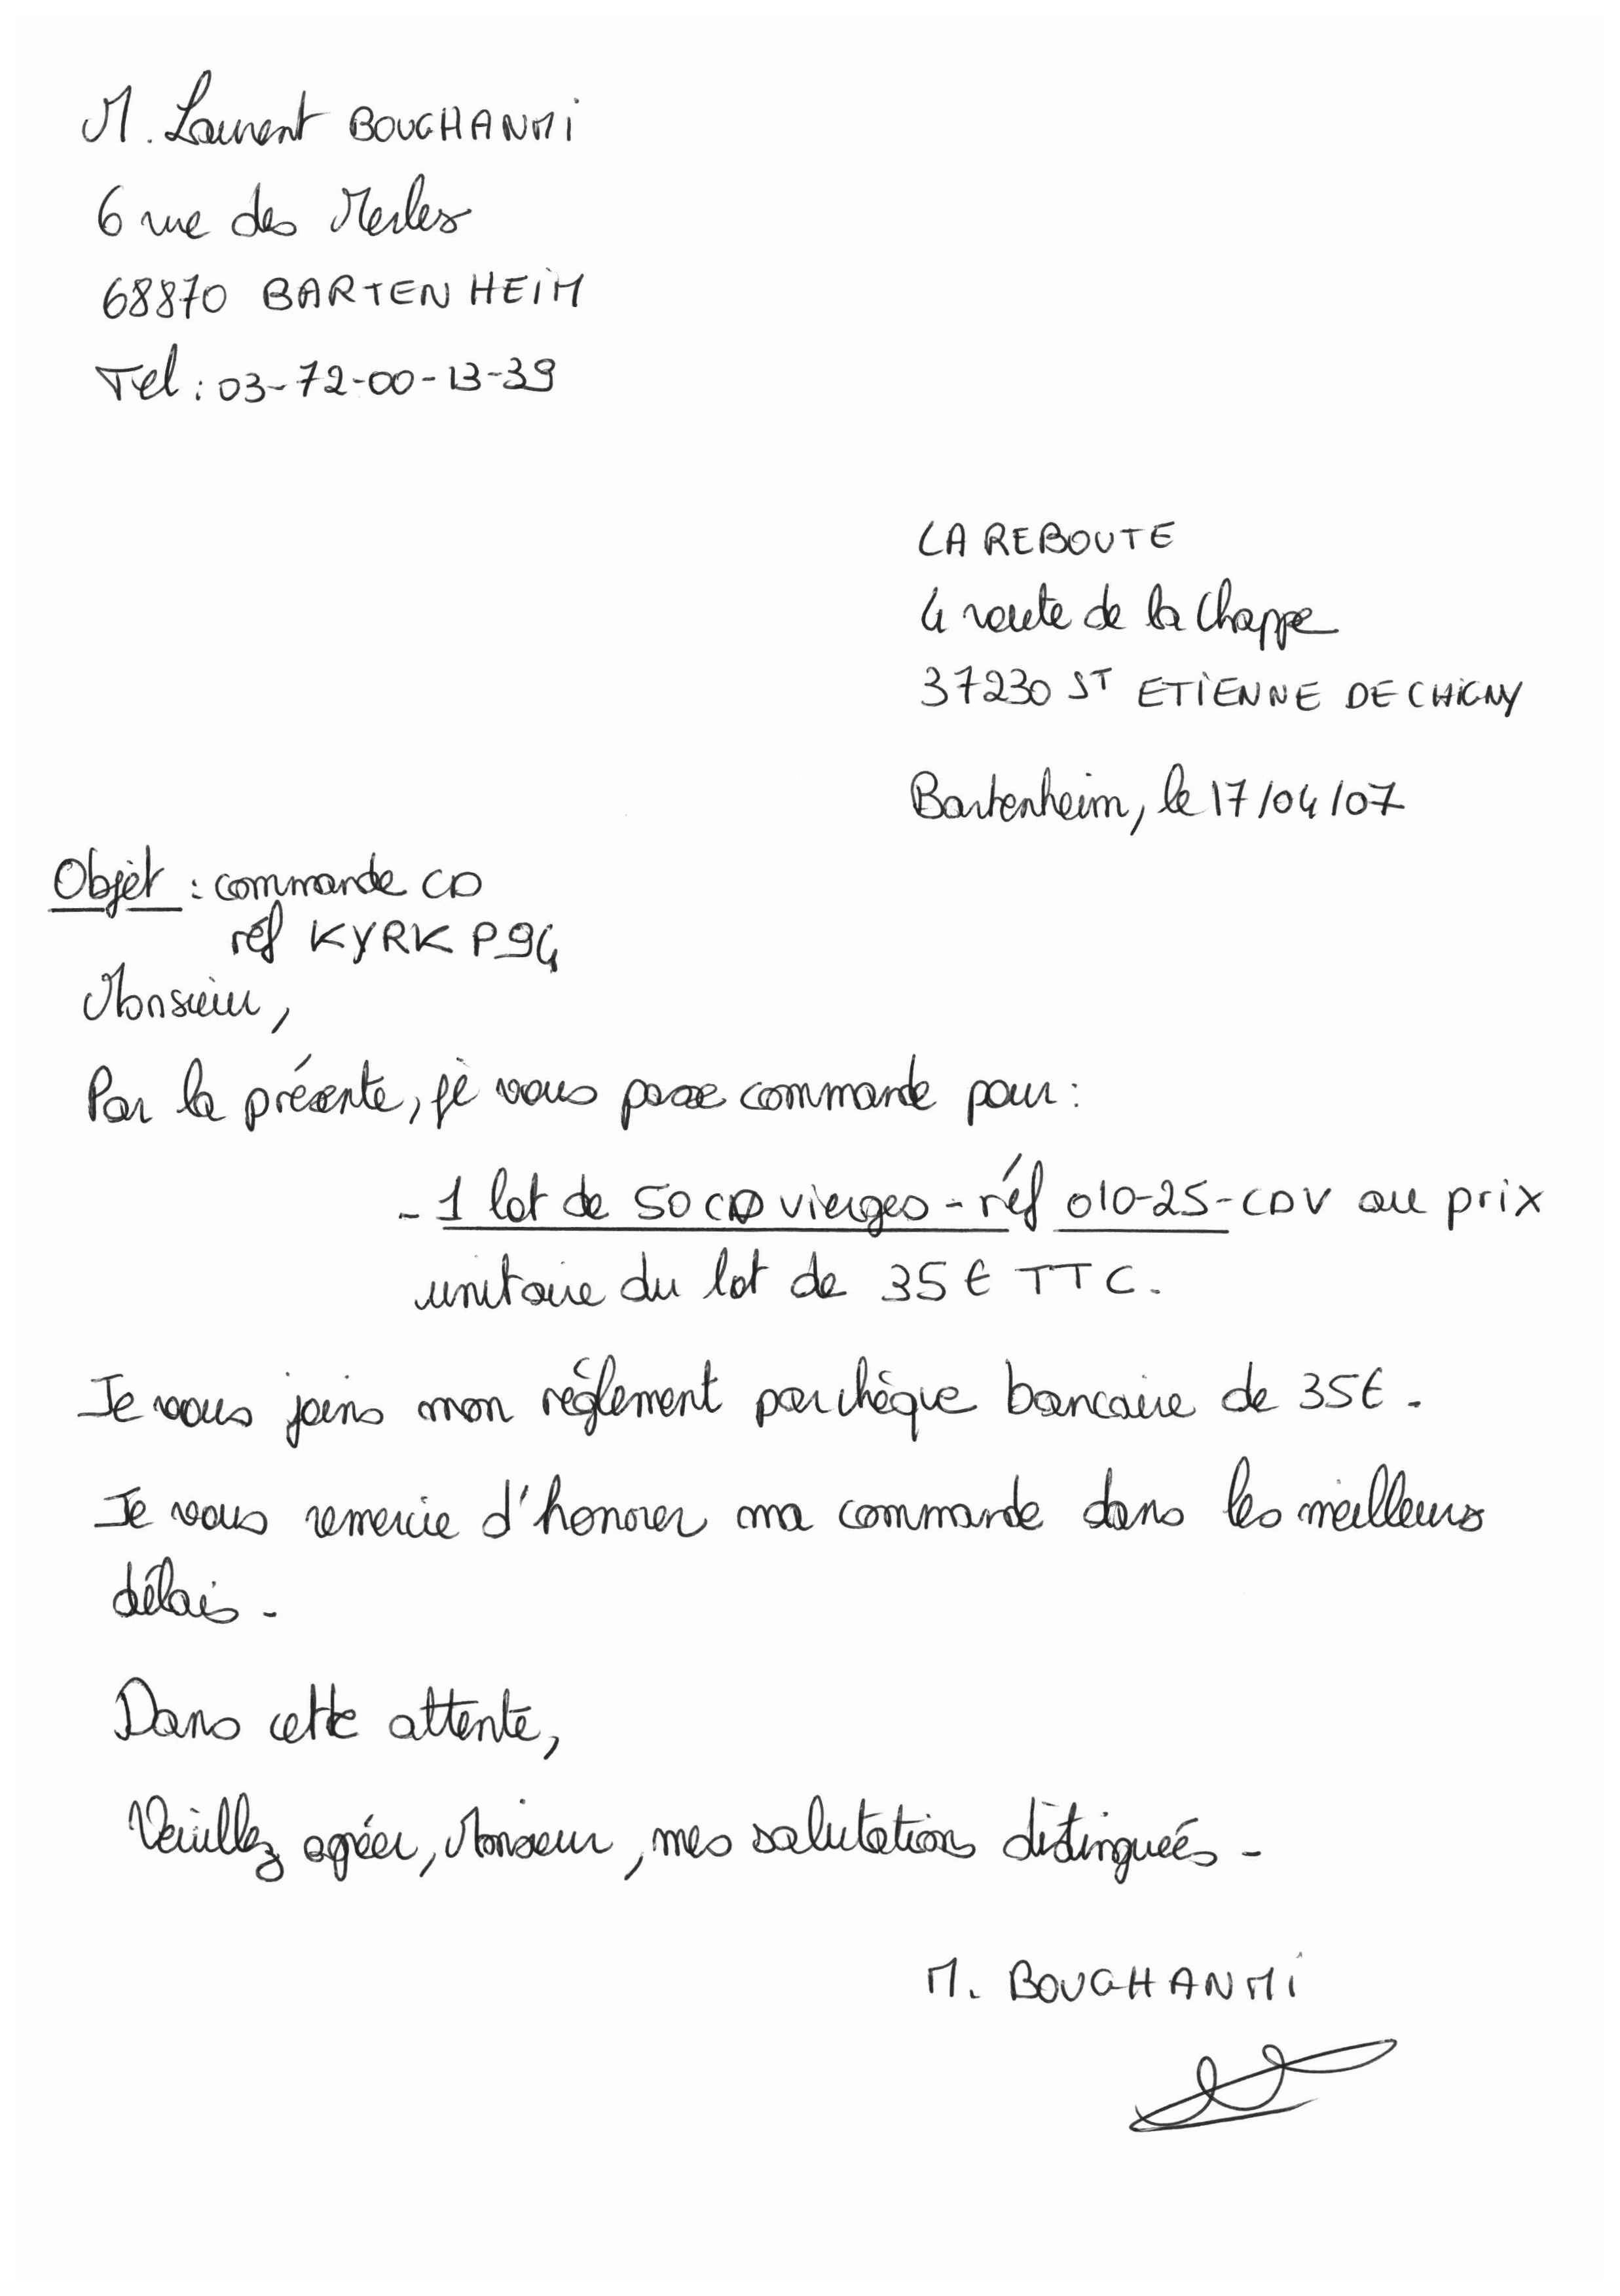 M. Laurent BOUGHANMI
6 rue des Merles
68870 BARTENHEIM
Tel : 03-72-00-13-39
LA REBOUTE
4 route de la Chappe
37230 ST ETIENNE DE CHIGNY
Bartenheim, le 17/04/07
Objet : commande CD
réf KYRK P94
Monsieur,
Par la présente, je vous passe commande pour :
- 1 lot de 50 CD vierges - réf 010-25-CDV au prix
unitaire du lot de 35 € TTC.
Je vous joins mon règlement par chèque bancaire de 35€.
Je vous remercie d'honorer ma commande dans les meilleurs
délais.
Dans cette attente,
Veuillez agréer, Monsieur, mes salutations distinguées.
M. BOUGHANMI